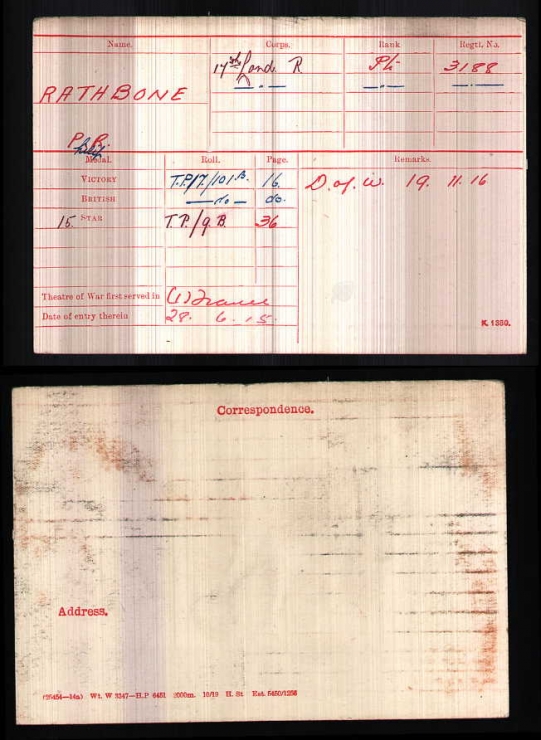 Name. Corps. Rank Regtl. No.
17th Lond. R Pte 3188
RATHBONE
P. R.
Medal. Roll. Page. Remarks.
VICTORY T.P/7/101.B. 16. D. of. W. 19. 11. 16
BRITISH —do— do.
15 STAR T.P./9.B. 36
Theatre of War first served in (1) France
Date of entry therein 28. 6. 15.
K. 1380.
Correspondence.
Address.
(35454—14a) Wt. W 5347—H.P 6451 2000m. 10/19 H. St